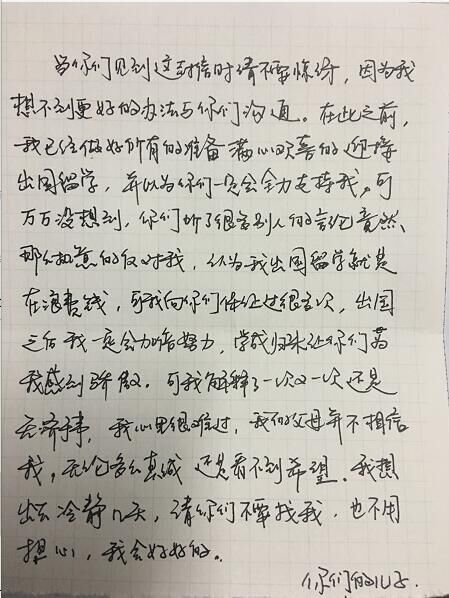 当你们见到这封信时请不要惊讶，因为我
想不到更好的办法与你们沟通。在此之前，
我已经做好所有的准备满心欢喜的迎接
出国留学，并以为你们一定会全力支持我，可
万万没想到，你们听了很多别人的言论竟然
那么执意的反对我，认为我出国留学就是
在浪费钱，可我向你们保证过很多次，出国
之后我一定会加倍努力，学成归来让你们为
我感到骄傲。可我解释了一次又一次还是
无济于事，我心里很难过，我的父母并不相信
我，无论多么真诚还是看不到希望。我想
出去冷静几天，请你们不要找我，也不用
担心，我会好好的。
你们的儿子.